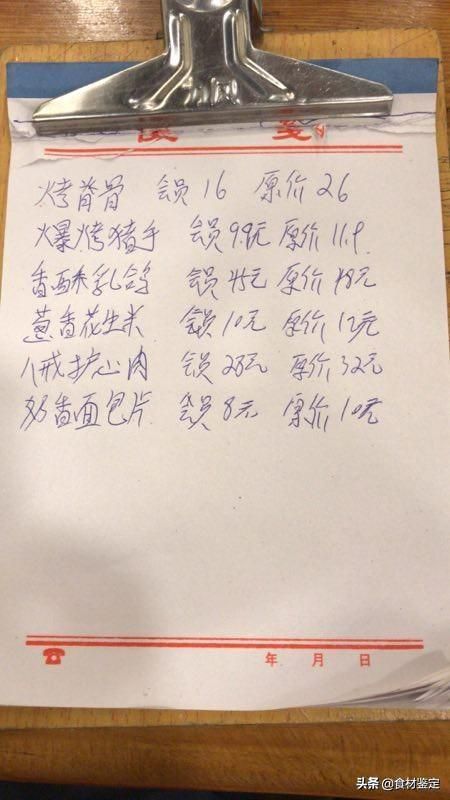 烤脊骨 会员16 原价26
爆烤猪手 会员9.9元 原价11.9
香酥乳鸽 会员45元 原价48元
葱香花生米 会员10元 原价12元
八戒护心肉 会员28元 原价32元
奶香面包片 会员8元 原价10元
年 月 日
头条 @食材鉴定